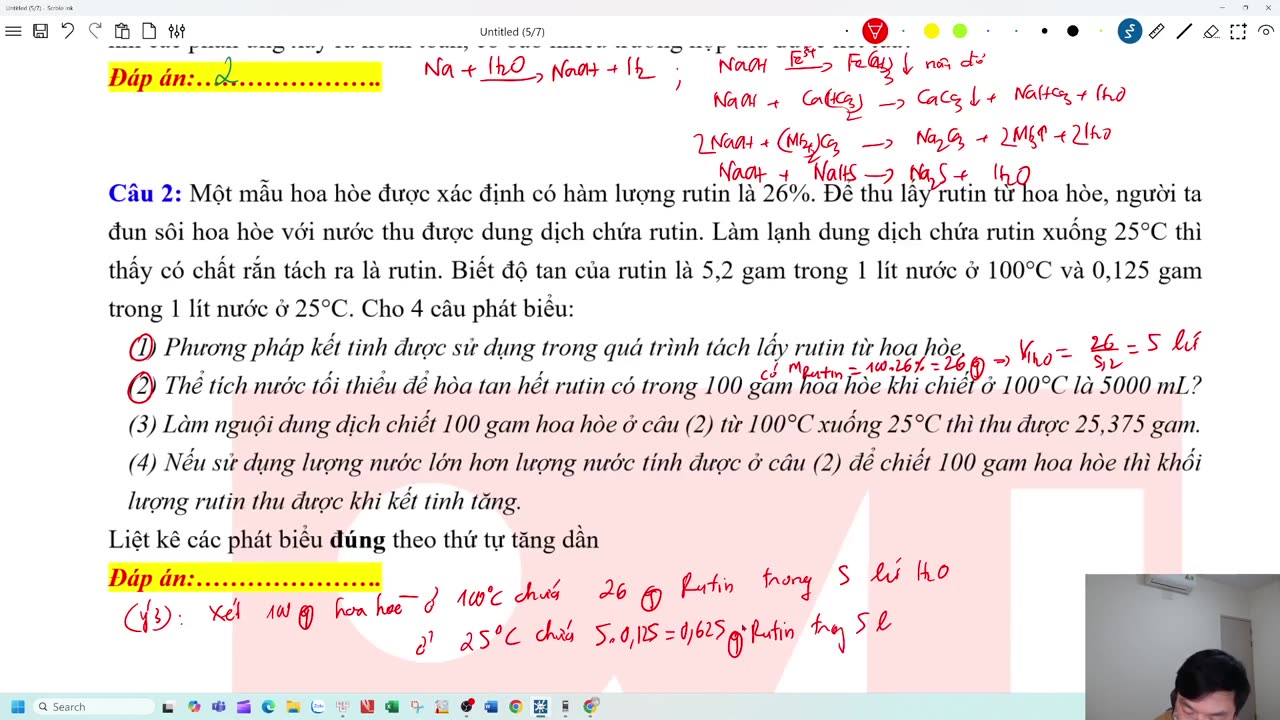 Untitled (5/7) - Scrble Ink
Untitled (5/7)
Đáp án:...2...................
Na + H2O → NaOH + H2 ;
NaOH Fe3+ → Fe(OH)3 ↓ nâu đỏ
NaOH + Ca(HCO3)2 → CaCO3 ↓ + NaHCO3 + H2O
2NaOH + (NH4)2CO3 → Na2CO3 + 2NH3↑ + 2H2O
NaOH + NaHS → Na2S + H2O
Câu 2: Một mẫu hoa hòe được xác định có hàm lượng rutin là 26%. Để thu lấy rutin từ hoa hòe, người ta
đun sôi hoa hòe với nước thu được dung dịch chứa rutin. Làm lạnh dung dịch chứa rutin xuống 25°C thì
thấy có chất rắn tách ra là rutin. Biết độ tan của rutin là 5,2 gam trong 1 lít nước ở 100°C và 0,125 gam
trong 1 lít nước ở 25°C. Cho 4 câu phát biểu:
(1) Phương pháp kết tinh được sử dụng trong quá trình tách lấy rutin từ hoa hòe.
có mRutin = 100.26% = 26 g ⇒ VH2O = 26/5,2 = 5 lít
(2) Thể tích nước tối thiểu để hòa tan hết rutin có trong 100 gam hoa hòe khi chiết ở 100°C là 5000 mL?
(3) Làm nguội dung dịch chiết 100 gam hoa hòe ở câu (2) từ 100°C xuống 25°C thì thu được 25,375 gam.
(4) Nếu sử dụng lượng nước lớn hơn lượng nước tính được ở câu (2) để chiết 100 gam hoa hòe thì khối
lượng rutin thu được khi kết tinh tăng.
Liệt kê các phát biểu đúng theo thứ tự tăng dần
Đáp án:......................
(ý 3): Xét 100 g hoa hòe – ở 100°C chứa 26 g Rutin trong 5 lít H2O
ở 25°C chứa 5.0,125 = 0,625 g Rutin trong 5 l
Search